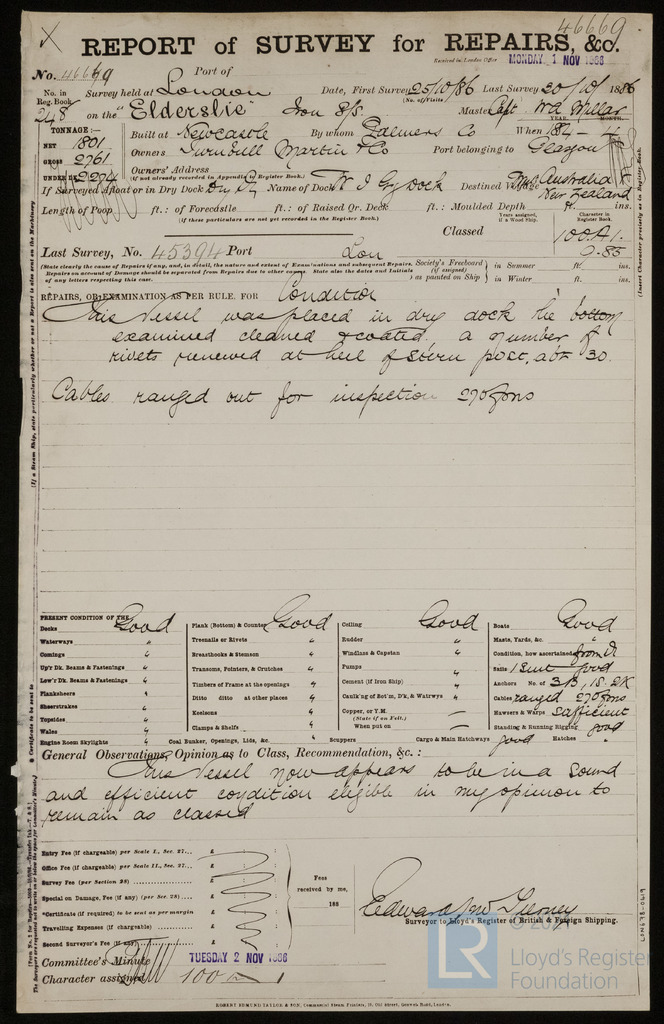 46669
REPORT of SURVEY for REPAIRS, &c.
Received in London Office MONDAY 1 NOV 1886
No. 46669 Port of
No. in Reg. Book Survey held at London Date, First Survey 25/10/86 Last Survey 30/10/1886
(No. of Visits)
248 on the "Elderslie" Iron S/S Master Capt Wm Millar
TONNAGE:— Built at Newcastle By whom Palmers Co When 1884 - 4
YEAR. MONTH.
NET 1801
GROSS 2761 Owners Turnbull Martin & Co Port belonging to Glasgow
UNDER DK 2274 Owners' Address
(If not already recorded in Appendix to Register Book.)
If Surveyed Afloat or in Dry Dock Dry Dk Name of Dock W I Gry Dock Destined Voyage Australia New Zealand
Length of Poop ft.: of Forecastle ft.: of Raised Qr. Deck ft.: Moulded Depth ft. ins.
(If these particulars are not yet recorded in the Register Book.)
Years assigned, if a Wood Ship. Character in Register Book.
Classed 100A1.
Last Survey, No. 45394 Port Lon 9.85
(State clearly the cause of Repairs if any, and, in detail, the nature and extent of Examinations and subsequent Repairs. Repairs on account of Damage should be separated from Repairs due to other causes. State also the dates and Initials of any letters respecting this case.
Society's Freeboard (if assigned) as painted on Ship in Summer ft. ins.
in Winter ft. ins.
REPAIRS, OR EXAMINATION AS PER RULE. FOR Condition
This Vessel was placed in dry dock the bottom
examined cleaned & coated, a number of
rivets renewed at heel of Stern post, abt 30.
Cables ranged out for inspection 270 fms
PRESENT CONDITION OF THE
Decks Good Plank (Bottom) & Counter Good Ceiling Good Boats Good
Waterways " Treenails or Rivets " Rudder " Masts, Yards, &c. "
Comings " Breasthooks & Stemson " Windlass & Capstan " Condition, how ascertained from Dk
Up'r Dk. Beams & Fastenings " Transoms, Pointers, & Crutches " Pumps " Sails 1 Suit good
Low'r Dk. Beams & Fastenings " Timbers of Frame at the openings " Cement (if Iron Ship) " Anchors No. of 3B, 1S, 2K
Planksheers " Ditto ditto at other places " Caulk'ng of Bot'm, D'k, & Watrwys " Cables ranged 270 fms
Sheerstrakes " Keelsons " Copper, or Y.M. Hawsers & Warps Sufficient
(State if on Felt.)
Topsides " Clamps & Shelfs " When put on Standing & Running Rigging good
Wales "
Engine Room Skylights " Coal Bunker, Openings, Lids, &c. " Scuppers " Cargo & Main Hatchways good Hatches "
General Observations, Opinion as to Class, Recommendation, &c.:
This Vessel now appears to be in a sound
and efficient condition eligible in my opinion to
remain as classed
Entry Fee (if chargeable) per Scale I., Sec. 27... £
Office Fee (if chargeable) per Scale II., Sec. 27... £
Survey Fee (per Section 28) £
Special on Damage, Fee (if any) (per Sec. 28) £
*Certificate (if required) to be sent as per margin
Travelling Expenses (if chargeable) £
Second Surveyor's Fee (if any) £
Fees received by me, 188
Surveyor to Lloyd's Register of British & Foreign Shipping.
Committee's Minute TUESDAY 2 NOV 1886
Character assigned 100 A 1
LON678-0619
LR
Lloyd's Register
Foundation